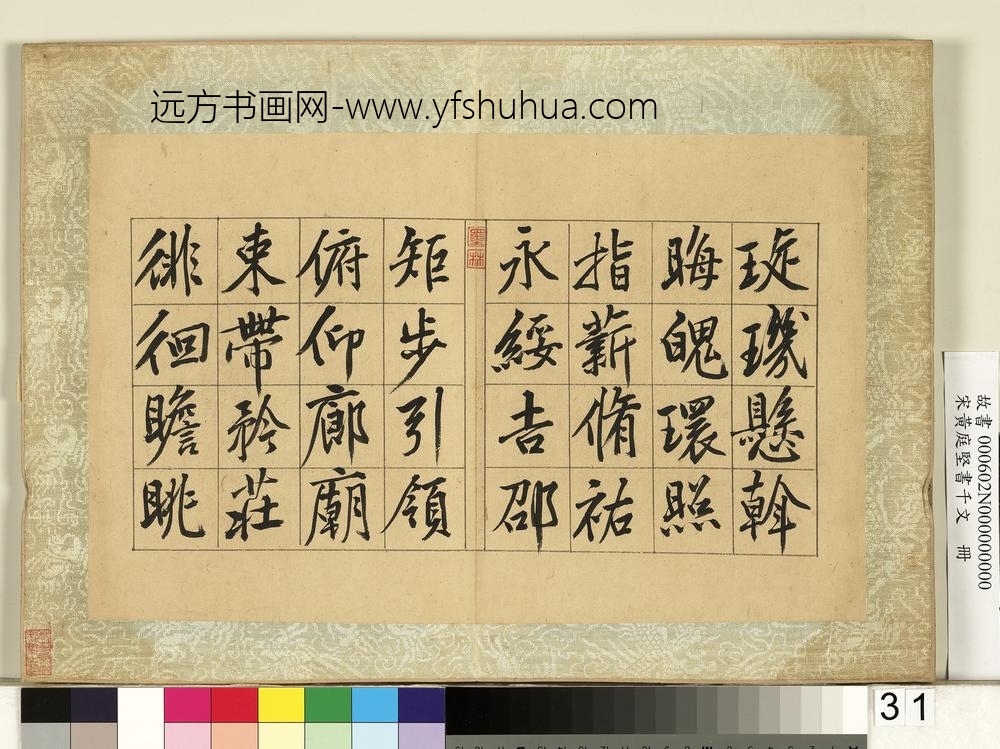 远方书画网-www.yfshuhua.com
琁璣懸斡
晦魄環照
指薪脩祐
永綏吉邵
矩步引領
俯仰廊廟
束帶矜莊
徘徊瞻眺
墨林
故書 000602N000000000
宋黃庭堅書千文 冊
31